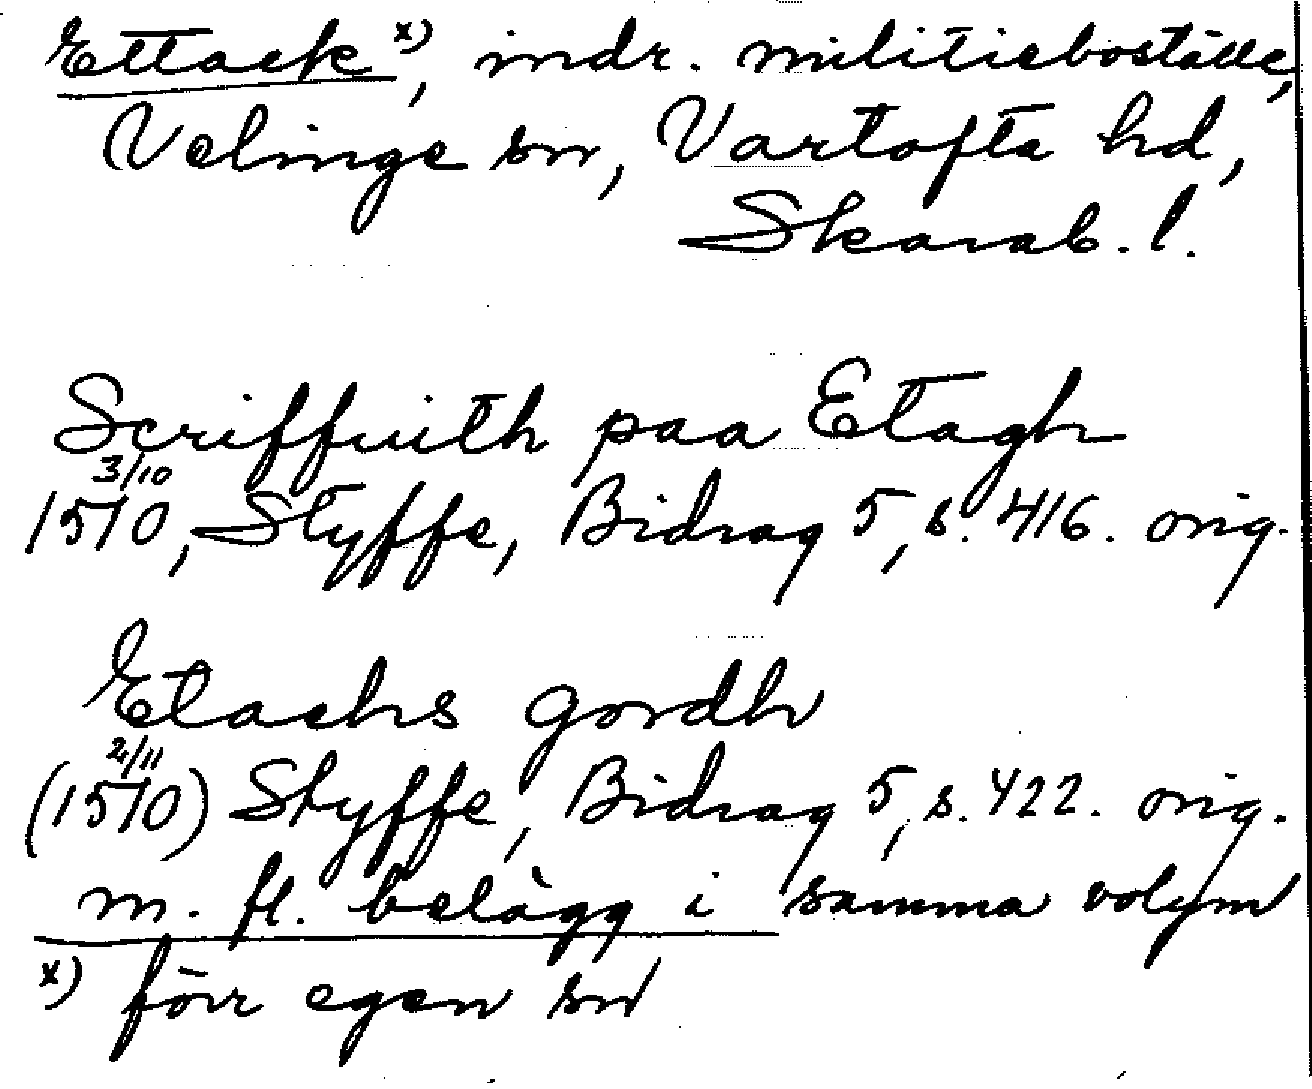 Ettack x), indr. militieboställe,
Velinge sn, Vartofta hd,
Skarab. l.
Scriffuith paa Etagh
3/10
1510, Styffe, Bidrag 5, s. 416. orig.
Etachs gordh
2/11
(1510) Styffe, Bidrag 5, s. 422. orig.
m. fl. belägg i samma volym
x) förr egen sn